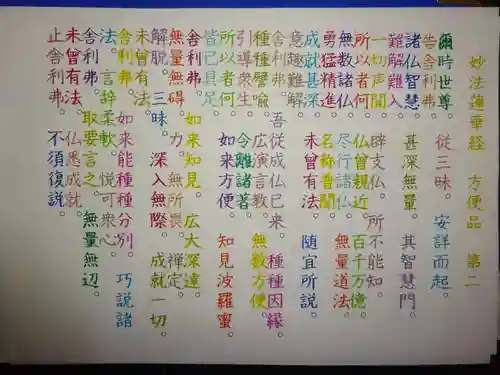 妙法蓮華経 方便品 第二
爾時世尊 従三昧 安詳而起。
告舎利弗
諸仏智慧 甚深無量。 其智慧門。
難解難入
一切声聞 辟支仏。 所不能知。
所以者何
仏曾親近 百千万億
無数諸仏 尽行諸仏 無量道法
勇猛精進 名称普聞
成就甚深 未曾有法 随宜所説。
意趣難解
舎利弗。 吾従成仏已来 種種因縁
種種譬喩 広演言教 無数方便
引導衆生 令離諸著
所以者何 如来方便 知見波羅蜜。
皆已具足
舎利弗。 如来知見。 広大深遠。
無量無碍 力。 無所畏。 禅定。
解脱。 三昧。 深入無際。 成就一切。
未曾有法
舎利弗。 如来能種種分別。 巧説諸
法。 言辞柔軟。 悦可衆心。
舎利弗。 取要言之。 無量無辺。
未曾有法 仏悉成就。
止舎利弗。 不須復説。